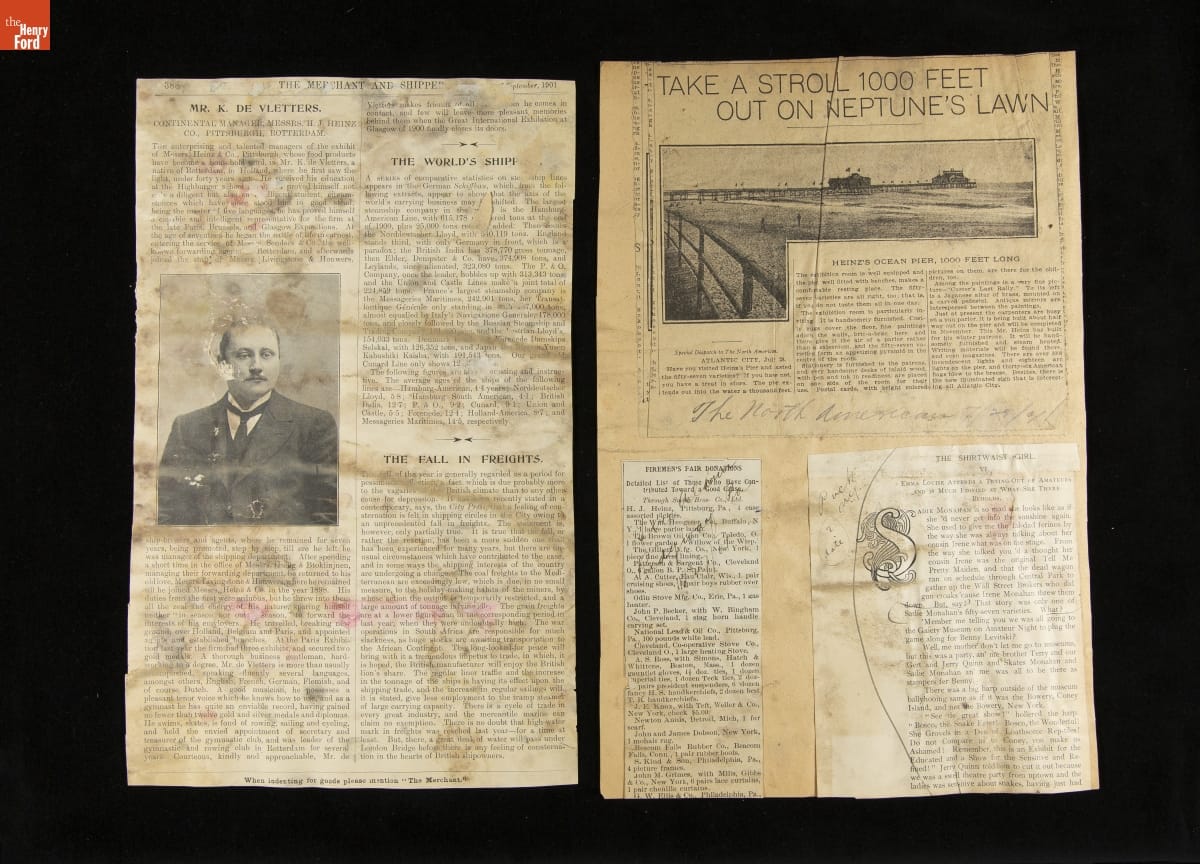 the
Henry
Ford
388
THE MERCHANT AND SHIPPE
September, 1901
MR. K. DE VLETTERS.
CONTINENTAL MANAGER, MESSRS. H. J. HEINZ
CO., PITTSBURGH, ROTTERDAM.
THE enterprising and talented managers of the exhibit
of Messrs. Heinz & Co., Pittsburgh, whose food products
have become a household word, is Mr. K. de Vletters, a
native of Rotterdam, in Holland, where he first saw the
light, under forty years ago. He received his education
at the Highburger school proved himself not
a diligent but a student, circum-
stances which have him in good stead
being the master five languages, he has proved himself
a capable and intelligent representative for the firm at
the late Paris, Brussels, and Glasgow Expositions. At
the age of seventeen he began the battle of life in earnest,
entering the service of Messrs. Sonders & Co., the well-
known forwarding agents, Rotterdam, and afterwards
joined the staff of Messrs. Livingstone & Houwers,
ship-brokers and agents, where he remained for seven
years, being promoted, step by step, till ere he left he
was manager of the shipping department. After spending
a short time in the office of Messrs. Prins & Blokhijnen,
managing their forwarding department, he returned to his
old love, Messrs. Livingstone & Houwers, where he remained
till he joined Messrs. Heinz & Co. in the year 1898. His
duties from the first were arduous, but he threw into them
all the zeal and energy of his
nother "in season and out of season" to forward the
interests of his employers. He travelled, breaking new
ground, over Holland, Belgium and Paris, and appointed
agents and established branches. At the Paris Exhibi-
tion last year the firm had three exhibits, and secured two
gold medals. A thorough business gentleman, hard-
working to a degree, Mr. de Vletters is more than usually
accomplished, speaking fluently several languages,
amongst others, English, French, German, Flemish, and
of course Dutch. A good musician, he possesses a
pleasant tenor voice which he knows how to use, and as a
gymnast he has quite an enviable record, having gained
no fewer than twelve gold and silver medals and diplomas.
He swims, skates, is fond of rowing, sailing and cycling,
and held the envied appointment of secretary and
treasurer of the gymnastic club, and was leader of the
gymnastic and rowing club in Rotterdam for several
years. Courteous, kindly and approachable, Mr. de
Vletters makes friends of all he comes in
contact, and few will leave more pleasant memories
behind them when the Great International Exhibition at
Glasgow of 1900 finally closes its doors.
THE WORLD'S SHIPP
A SERIES of comparative statistics on steamship lines
appears in the German Schiffbau, which, from the fol-
lowing extracts, appear to show that the axis of the
world's carrying business may shifted. The largest
steamship company in the is the Hamburg-
American Line, with 615,178 tons at the end
of 1900, plus 25,000 tons added. Then comes
the Norddeutscher Lloyd, with 540,119 tons. England
stands third, with only Germany in front, which is a
paradox; the British India has 378,770 gross tonnage,
then Elder, Dempster & Co. have 374,908 tons, and
Leylands, since alienated, 323,080 tons. The P. & O.
Company, once the leader, bobbles up with 313,343 tons
and the Union and Castle Lines make a joint total of
224,859 tons. France's largest steamship company is
the Messageries Maritimes, 242,901 tons, her Transat-
lantique Générale only standing in tons,
almost equalled by Italy's Navigazione Generale, 178,000
tons, and closely followed by the Russian Steamship and
Trading and the Austrian Lloyd's,
154,033 tons. Denmark Forenede Damskips
Selskal, with 126,352 tons, and Japan Nippon Yusen
Kabushiki Kaisha, with 191,543 tons. Our
Cunard Line only shows
The following figures, are interesting and instruc-
tive. The average ages of the ships of the following
lines are:—Hamburg-American, 4.4 years; Norddeutscher
Lloyd, 5.8; Hamburg-South American, 4.1; British
India, 12.7; P. & O., 9.2; Cunard, 9.1; Union and
Castle, 5.5; Forenede, 12.1; Holland-America, 8.7; and
Messageries Maritimes, 14.5, respectively.
THE FALL IN FREIGHTS.
of the year is generally regarded as a period for
pessimistic fact, which is due probably more
to the vagaries British climate than to any other
cause for depression. It has been recently stated in a
contemporary, says the City Press, that a feeling of con-
sternation is felt in shipping circles in the City owing to
an unprecedented fall in freights. The statement is,
however, only partially true. It is true that the fall, or
rather the reaction, has been a more sudden one than
has been experienced for many years, but there are un-
usual circumstances which have contributed to the case,
and in some ways the shipping interests of the country
are undergoing a change. The coal freights to the Medi-
terranean are exceedingly low, which is due, in no small
measure, to the holiday-making habits of the miners, by
whose action the output is temporarily restricted, and a
large amount of tonnage The grain freights
are at a lower figure than the corresponding period
last year, when they were unduly high. The war
operations in South Africa are responsible for much
slackness, as huge stocks are awaiting transportation to
the African Continent. The long-looked-for peace will
bring with it a tremendous impetus to trade, in which, it
is hoped, the British manufacturer will enjoy the British
lion's share. The regular liner traffic and the increase
in the tonnage of the ships is having its effect upon the
shipping trade, and the increase in regular sailings will,
it is stated, give less employment to the tramp steamer
of large carrying capacity. There is a cycle of trade in
every great industry, and the mercantile marine can
claim no exemption. There is no doubt that high-water
mark in freights was reached last year—for a time at
least. But, there, a great deal of water will pass under
London Bridge before there is any feeling of conster-
nation in the hearts of British shipowners.
When indenting for goods please mention "The Merchant."
TAKE A STROLL 1000 FEET
OUT ON NEPTUNE'S LAWN
HEINZ'S OCEAN PIER, 1000 FEET LONG
Special Dispatch to The North American.
ATLANTIC CITY, July 28.
Have you visited Heinz's Pier and tasted
the fifty-seven varieties? If you have not,
you have a treat in store. The pier ex-
tends out into the water a thousand feet.
The exhibition room is well equipped and
the pier well fitted with benches, makes a
comfortable resting place. The fifty-
seven varieties are all right, too; that is,
if you do not taste them all in one day.
The exhibition room is particularly in-
viting. It is handsomely furnished. Cost-
ly rugs cover the floor, fine paintings
adorn the walls, bric-a-brac, here and
there give it the air of a parlor rather
than a salesroom, and the fifty-seven va-
rieties form an appetizing pyramid in the
centre of the room.
Stationery is furnished to the patrons,
and ten handsome desks of inlaid wood,
with pen and ink in readiness, are placed
on one side of the room for their
use. Postal cards, with bright colored
pictures on them, are there for the chil-
dren, too.
Among the paintings is a very fine pic-
ture—"Custer's Last Rally." To its left
is a Japanese altar of brass, mounted on
a carved pedestal. Antique mirrors are
interspersed between the paintings.
Just at present the carpenters are busy
on a sun parlor. It is being built about half
way out on the pier and will be completed
in November. This Mr. Heinz has built
for his winter patrons. It will be hand-
somely furnished and steam heated.
Writing materials will be found there,
and even magazines. There are over 200
incandescent lights and eighteen arc
lights on the pier, and thirty-six American
flags blow to the breeze. Besides, there is
the new illuminated sign that is interest-
ing all Atlantic City.
The North American 7/29/01
FIREMEN'S FAIR DONATIONS
Detailed List of Those Who Have Con-
tributed Toward a Good Cause.
Through Smith Bros. Co., Ltd.
H. J. Heinz, Pittsburg, Pa., 1 case
assorted pickles.
The Wm. Hengerer Co., Buffalo, N.
Y., 1 large parlor lamp.
The Brown Oil Can Co., Toledo, O.,
1 flower garden Willow of the Wisp.
The Gilbert Mfg. Co., New York, 1
piece fine dress lining.
Patterson & Sargent Co., Cleveland
O., 1 gallon B. P. S. Paint.
At A. Cutter, Eau Clair, Wis., 1 pair
cruising shoes, 1 pair boys rubber over
shoes.
Odin Stove Mfg. Co., Erie, Pa., 1 gas
heater.
John P. Becker, with W. Bingham
Co., Cleveland, 1 stag horn handle
carving set.
National Lead & Oil Co., Pittsburg,
Pa., 100 pounds white lead.
Cleveland Co-operative Stove Co.,
Cleveland O., 1 large heating Stove.
A. S. Ross, with Simons, Hatch &
Whittern, Boston, Mass., 1 dozen
gauntlet gloves, 1½ doz. ties, 1 dozen
Imperial ties, 1 dozen Teck ties, 2 doz-
en pairs president suspenders, 6 dozen
fancy H. S. handkerchiefs, 2 dozen best
T. R. handkerchiefs.
J. E. Knox, with Teft, Weller & Co.,
New York, check $5.00.
Newton Annis, Detroit, Mich., 1 fur
scarf.
John and James Dobson, New York,
1 mohair rug.
Beacom Falls Rubber Co., Beacom
Falls, Conn., 1 pair rubber boots.
S. Kind & Son, Philadelphia, Pa.,
4 picture frames.
John M. Grimes, with Mills, Gibbs
& Co., New York, 6 pairs lace curtains,
1 pair chenille curtains.
G. W. Ellis & Co., Philadelphia, Pa.,
THE SHIRTWAIST GIRL.
VI.
EMMA LOUISE ATTENDS A TRYING OUT OF AMATEURS
AND IS MUCH EDIFIED AT WHAT SHE THERE
BEHOLDS.
SADIE MONAHAN is so mad she looks like as if
she'd never get into the sunshine again.
She used to give me the folded ferines by
the way she was always talking about her
cousin Irene what was on the stage. From
the way she talked you'd a thought her
cousin Irene was the original Tell Me
Pretty Maiden, and that the dead wagon
ran on schedule through Central Park to
gather up the Wall Street Brokers who did
gun freaks 'cause Irene Monahan threw them
down. But, say! That story was only one of
Sadie Monahan's fifty-seven varieties. What?
Member me telling you we was all going to
the Gaiety Museum on Amateur Night to play the
game along for Benny Levitski?
Well, me mother don't let me go to museums,
but this was a party, an' me brother Terry and our
Gert and Jerry Quinn and Skates Monahan and
Sadie Monahan an' me was all to be there as
stampers for Benny.
There was a big harp outside of the museum
ballyhooing same as if it was the Bowery, Coney
Island, and not the Bowery, New York.
"See the great show!" hollered the harp
Bosco, the Snake Eater! Bosco, the Wonderful!
She Grovels in a Den of Loathsome Reptiles!
Do not Compare us to Coney, you make us
Ashamed! Remember, this is an Exhibit for the
Educated and a Show for the Sensitive and Re-
fined!" Jerry Quinn told him to cut it out because
we was a swell theatre party from uptown and the
ladies was sensitive about snakes, having just had